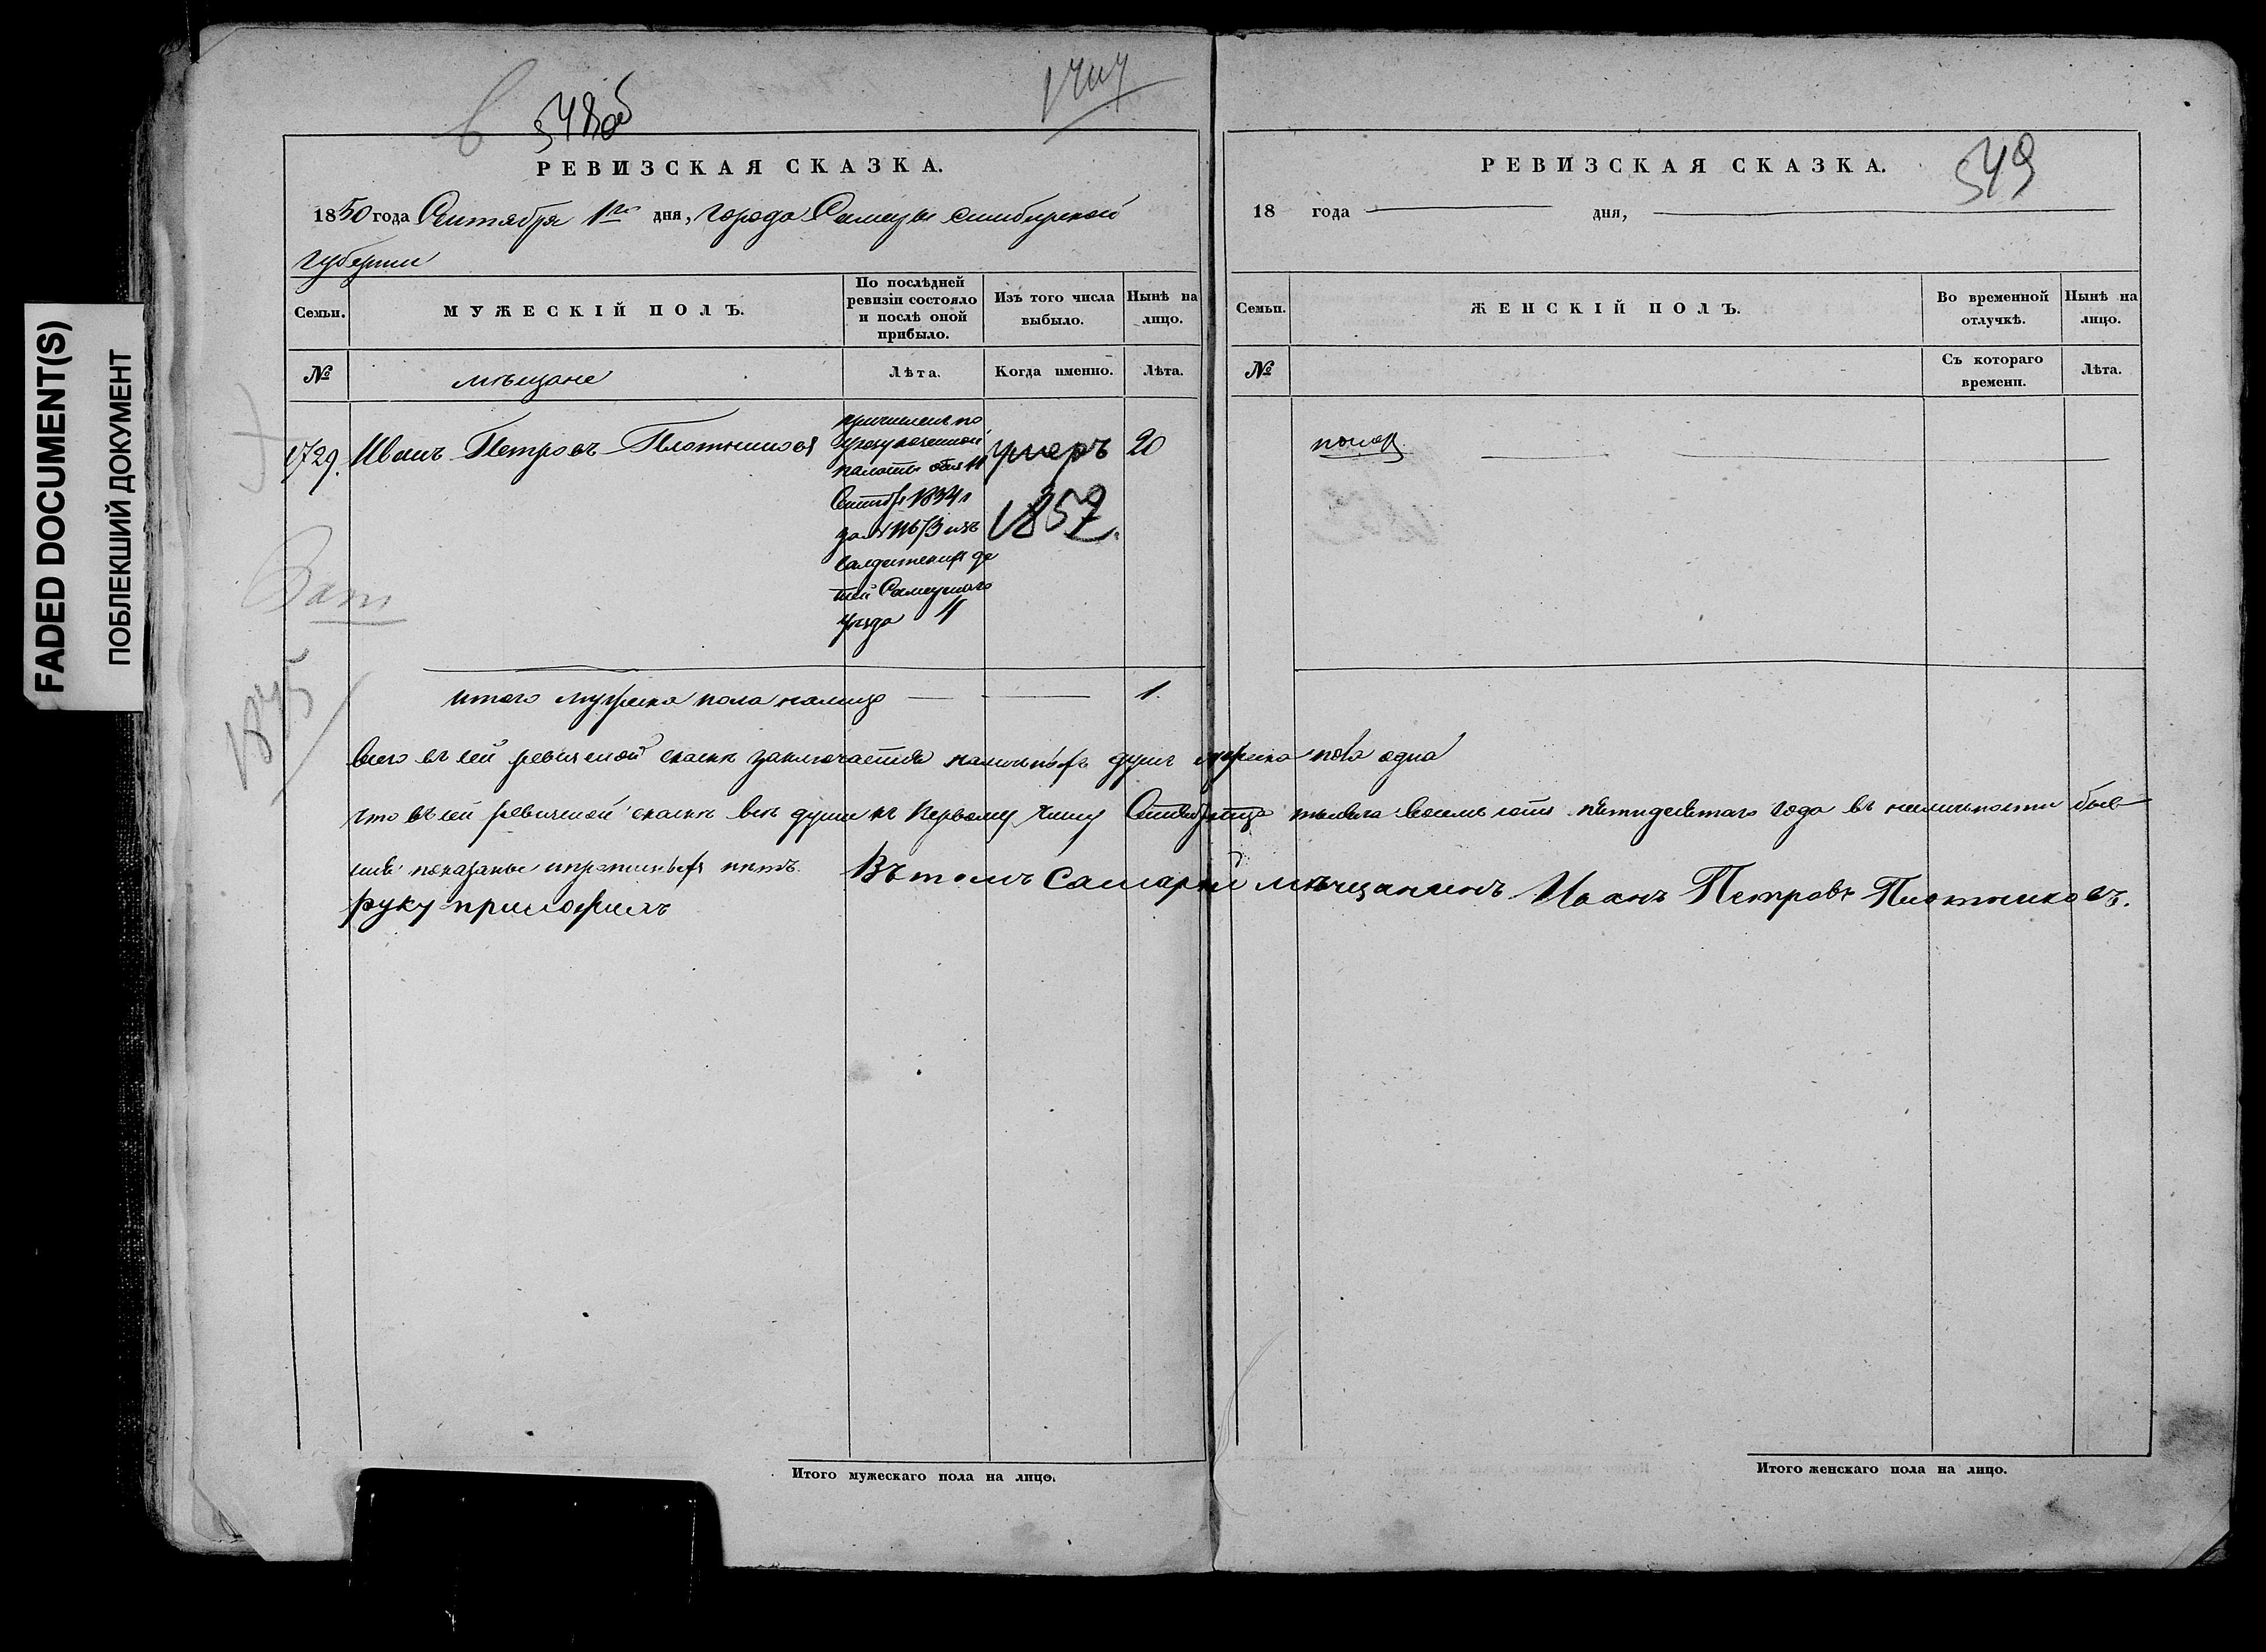 FADED DOCUMENT(S)
ПОБЛЕКШИЙ ДОКУМЕНТ
548об
РЕВИЗСКАЯ СКАЗКА.
1850 года Сентября 1го дня, города Самары Симбирской
губернии
Семьи.
МУЖЕСКІЙ ПОЛЪ.
По послѣдней
ревизіи состояло
и послѣ оной
прибыло.
Изъ того числа
выбыло.
Нынѣ на
лицо.
№
мѣщане
Лѣта.
Когда именно.
Лѣта.
1729.
Иванъ Петровъ Плотниковъ
причисленъ по
указу казенной
палаты отъ 11
Сентбр 1834 г
за №
изъ
Салдатскихъ де
тей Самарскаго
уѣзда
умеръ
1857.
20
1875
итого мужска пола налицо
1.
Всего въ сей ревизской сказкѣ заключается наличныхъ душъ мужска пола одна
Что въ сей ревизской сказкѣ всѣ души къ первому числу Сентября тысяча восемь сотъ пятидесятаго года въ наличности быв
шія показаны и прописныхъ нѣтъ. Въ томъ Самарскій мѣщанинъ Иванъ Петровъ Плотниковъ.
руку приложилъ
Итого мужескаго пола на лицо.
549
РЕВИЗСКАЯ СКАЗКА.
18 года дня,
Семьи.
ЖЕНСКІЙ ПОЛЪ.
Во временной
отлучкѣ.
Нынѣ на
лицо.
№
Съ котораго
времени.
Лѣта.
Итого женскаго пола на лицо.